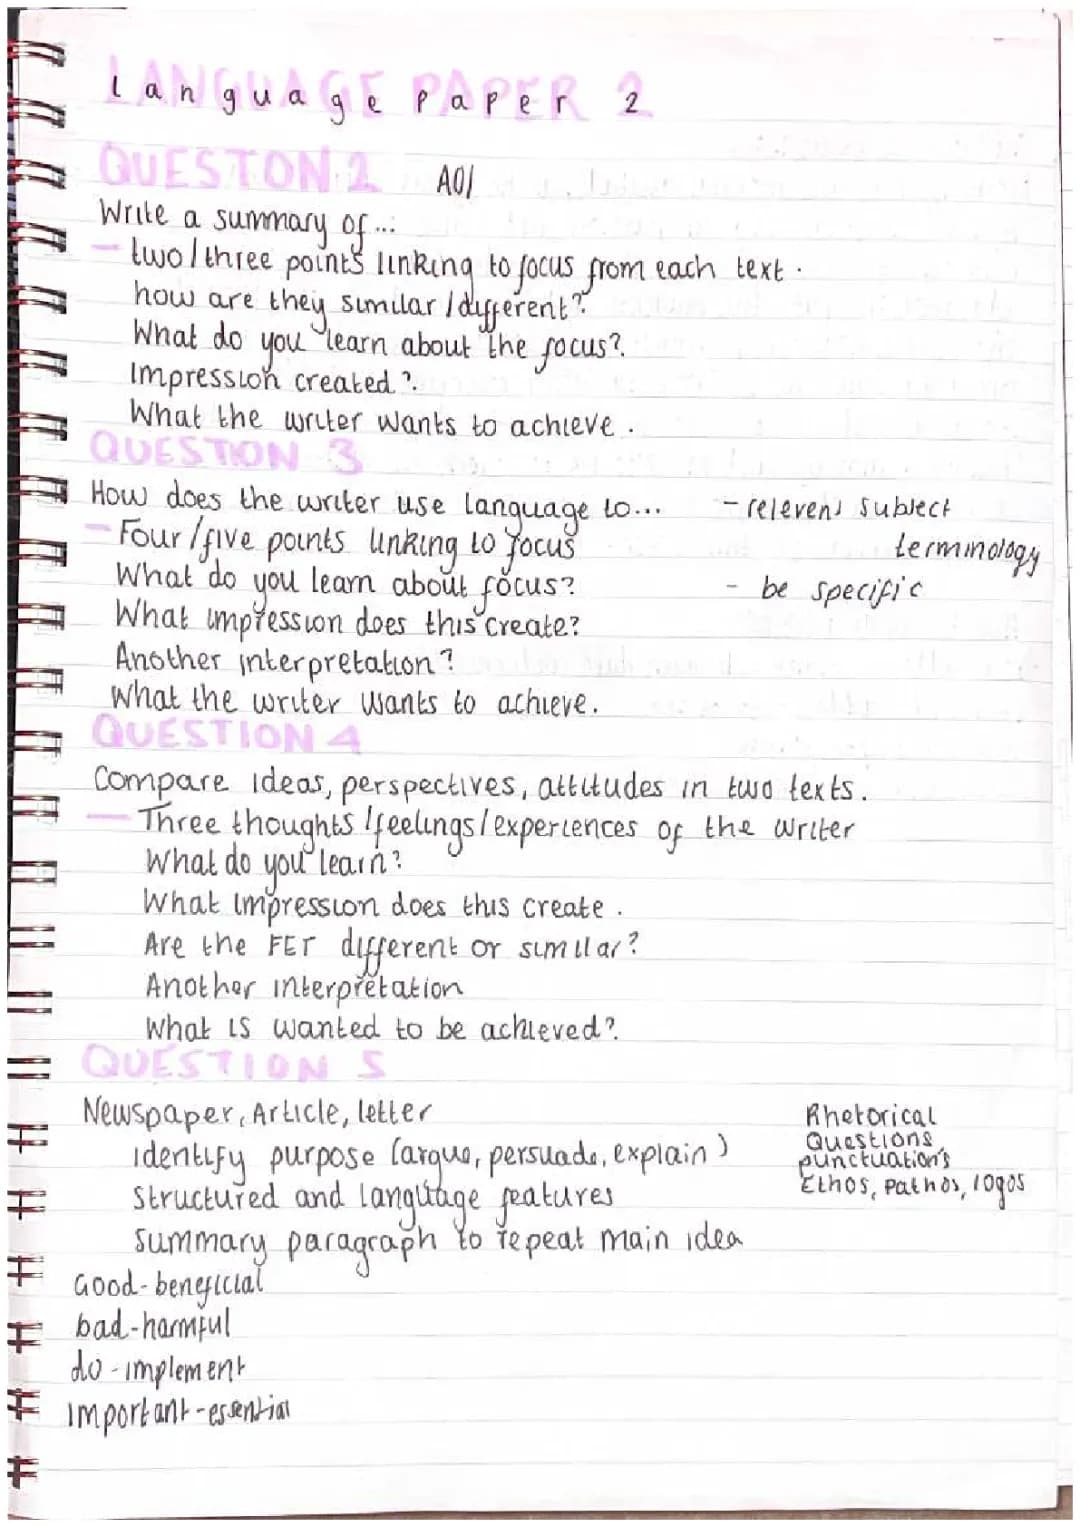 LANGUAGE PAPER 2
Language Paper 2
QUESTON 2 AO1
Write a summary of...
- two/three points linking to focus from each text.
how are they similar/different?
What do you learn about the focus?
Impression created?
What the writer wants to achieve.
QUESTION 3
How does the writer use language to...
- relevent subject
terminology
- Four/five points linking to focus
What do you learn about focus?
- be specific
What impression does this create?
Another interpretation?
What the writer wants to achieve.
QUESTION 4
Compare ideas, perspectives, attitudes in two texts.
- Three thoughts/feelings/experiences of the writer
What do you learn?
What impression does this create.
Are the FET different or similar?
Another interpretation
What is wanted to be achieved?
QUESTION 5
Newspaper, Article, letter
identify purpose (argue, persuade, explain)
Structured and language features
Summary paragraph to repeat main idea
Rhetorical
Questions,
punctuations
Ethos, Pathos, logos
Good - beneficial
bad - harmful
do - implement
Important - essential